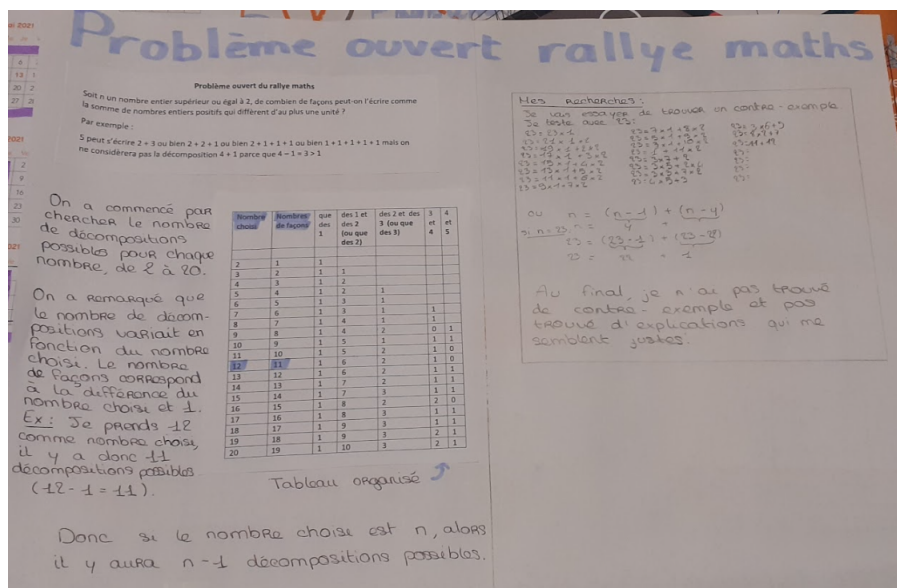 Problème ouvert rallye maths
Problème ouvert du rallye maths
Soit n un nombre entier supérieur ou égal à 2, de combien de façons peut-on l'écrire comme
la somme de nombres entiers positifs qui diffèrent d'au plus une unité ?
Par exemple :
5 peut s'écrire 2 + 3 ou bien 2 + 2 + 1 ou bien 2 + 1 + 1 + 1 ou bien 1 + 1 + 1 + 1 + 1 mais on
ne considérera pas la décomposition 4 + 1 parce que 4 – 1 = 3 > 1
On a commencé par
chercher le nombre
de décompositions
possibles pour chaque
nombre, de 2 à 20.
On a remarqué que
le nombre de décom-
positions variait en
fonction du nombre
choisi. Le nombre
de façons correspond
à la différence du
nombre choisi et 1.
Ex : Je prends 12
comme nombre choisi,
il y a donc 11
décompositions possibles
(12 - 1 = 11).
Nombre choisi | Nombres de façons | que des 1 | des 1 et des 2 (ou que des 2) | des 2 et des 3 (ou que des 3) | 3 et 4 | 4 et 5
2 1 1
3 2 1 1
4 3 1 2
5 4 1 2 1
6 5 1 3 1
7 6 1 3 1 1
8 7 1 4 1 1
9 8 1 4 2 0 1
10 9 1 5 1 1 1
11 10 1 5 2 1 0
12 11 1 6 2 1 0
13 12 1 6 2 1 1
14 13 1 7 2 1 1
15 14 1 7 3 1 1
16 15 1 8 2 2 0
17 16 1 8 3 1 1
18 17 1 9 3 1 1
19 18 1 9 3 2 1
20 19 1 10 3 2 1
Tableau organisé
Donc si le nombre choisi est n, alors
il y aura n-1 décompositions possibles.
Mes recherches :
Je vais essayer de trouver un contre-exemple
Je teste avec 23 :
23 = 23 × 1
ou n = (n-1) + (n-y)
si n = 23,
23 = (23-1) + (23-22)
23 = 22 + 1
Au final, je n'ai pas trouvé
de contre-exemple et pas
trouvé d'explications qui me
semblent justes.